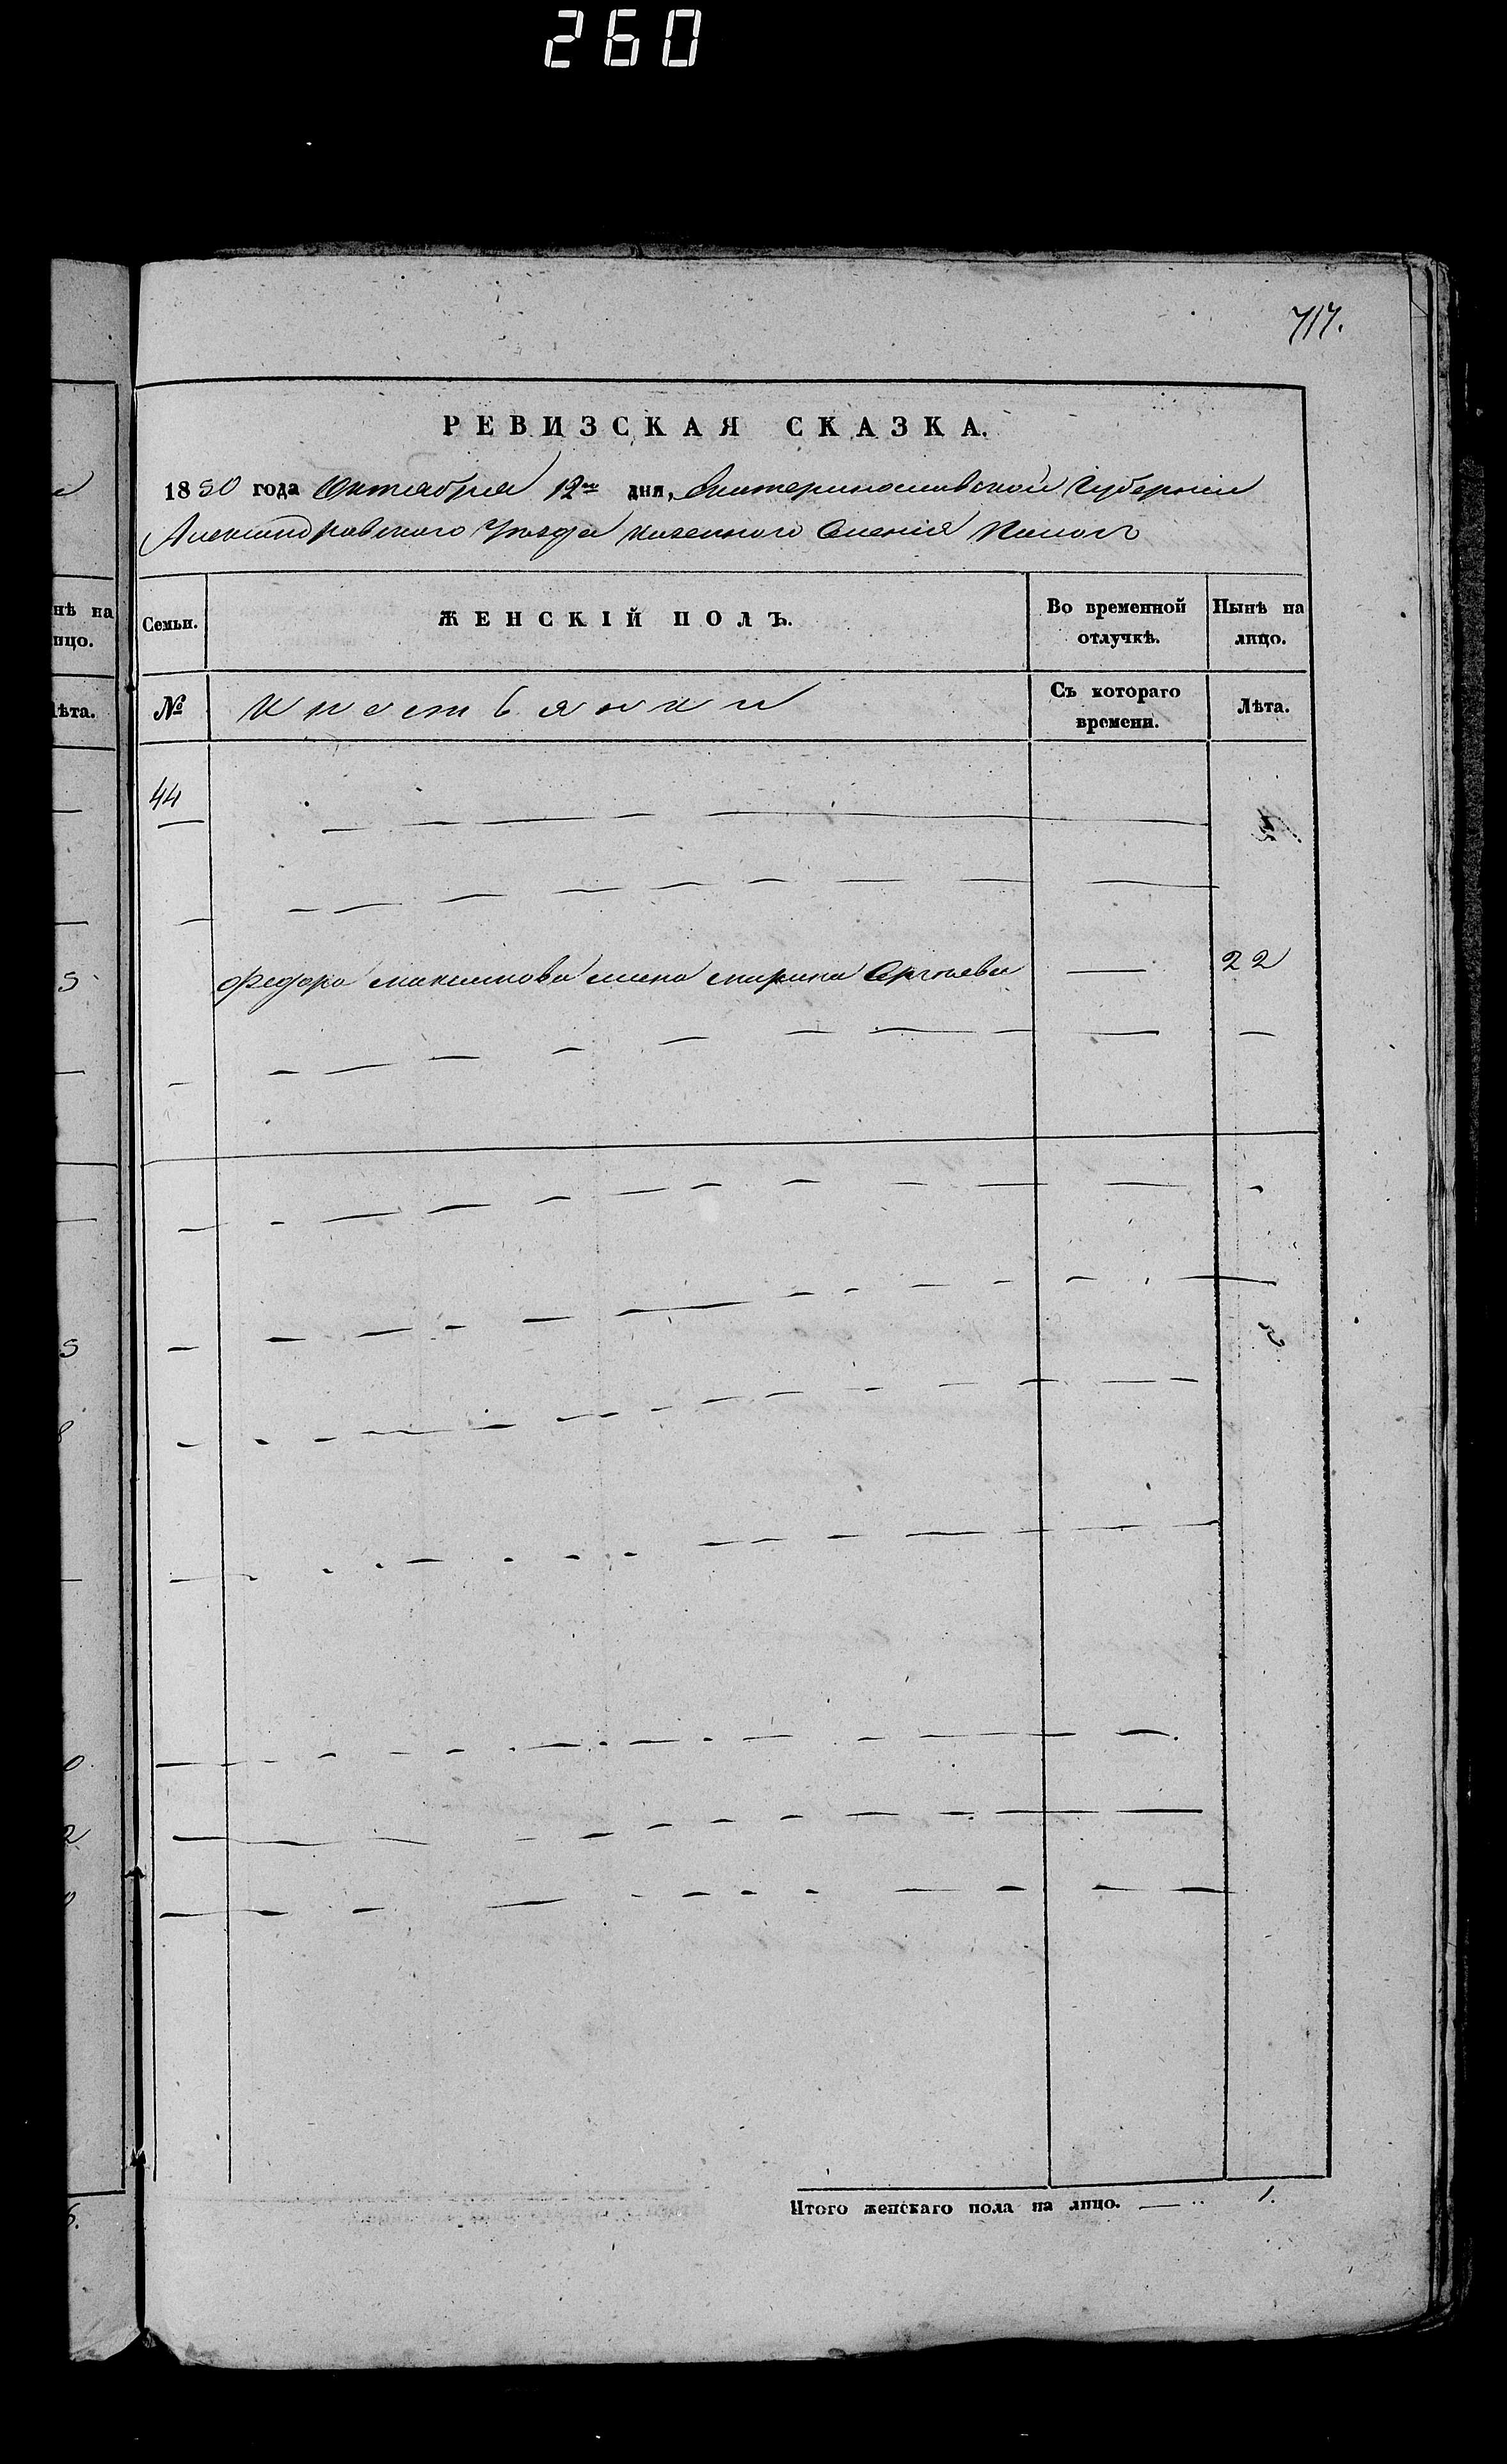 260
717.
РЕВИЗСКАЯ СКАЗКА.
1850 года Октября 12го дня, Екатеринославской Губернии
Александровского Уезда казенного Селения
Семьи. ЖЕНСКІЙ ПОЛЪ. Во временной отлучкѣ. Нынѣ на лицо.
№ Крестьянки Съ котораго времени. Лѣта.
44
Федора Максимова жена Марина Сергѣева — 22
Итого женскаго пола на лицо. — 1.
нѣ на
ицо.
ѣта.